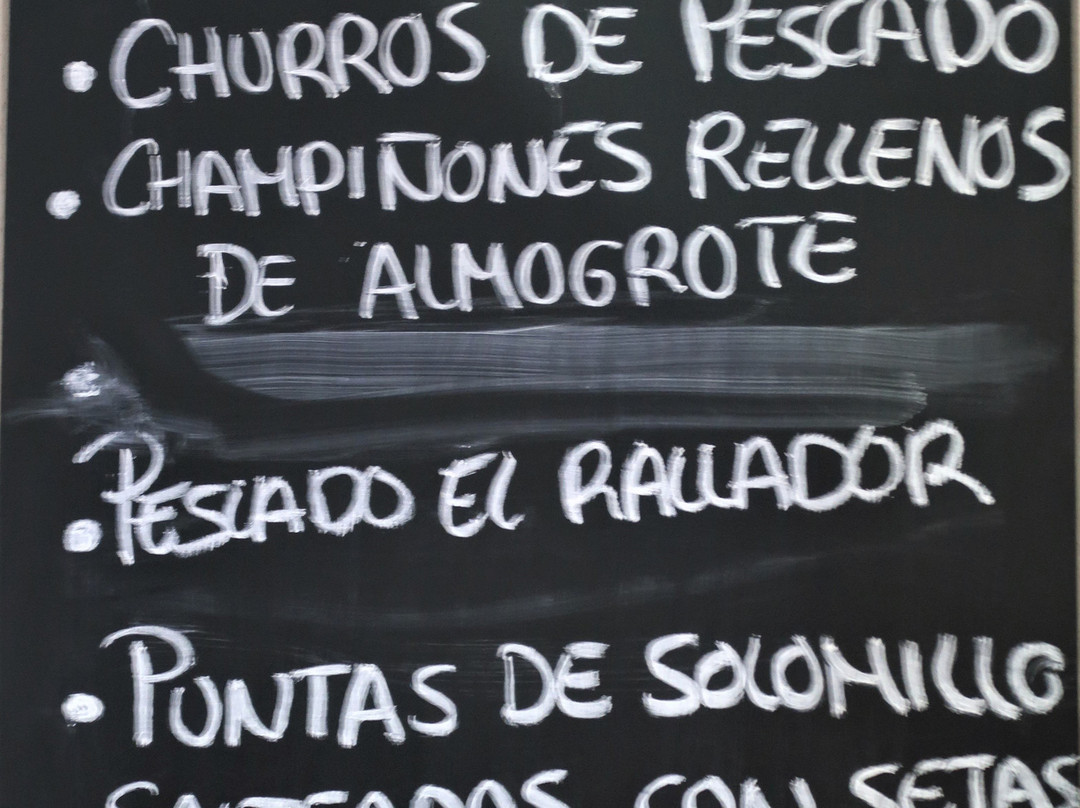 • CHURROS DE PESCADO
• CHAMPIÑONES RELLENOS
DE ALMOGROTE
•
• PESCADO EL RALLADOR
• PUNTAS DE SOLOMILLO
SALTEADAS CON SETAS